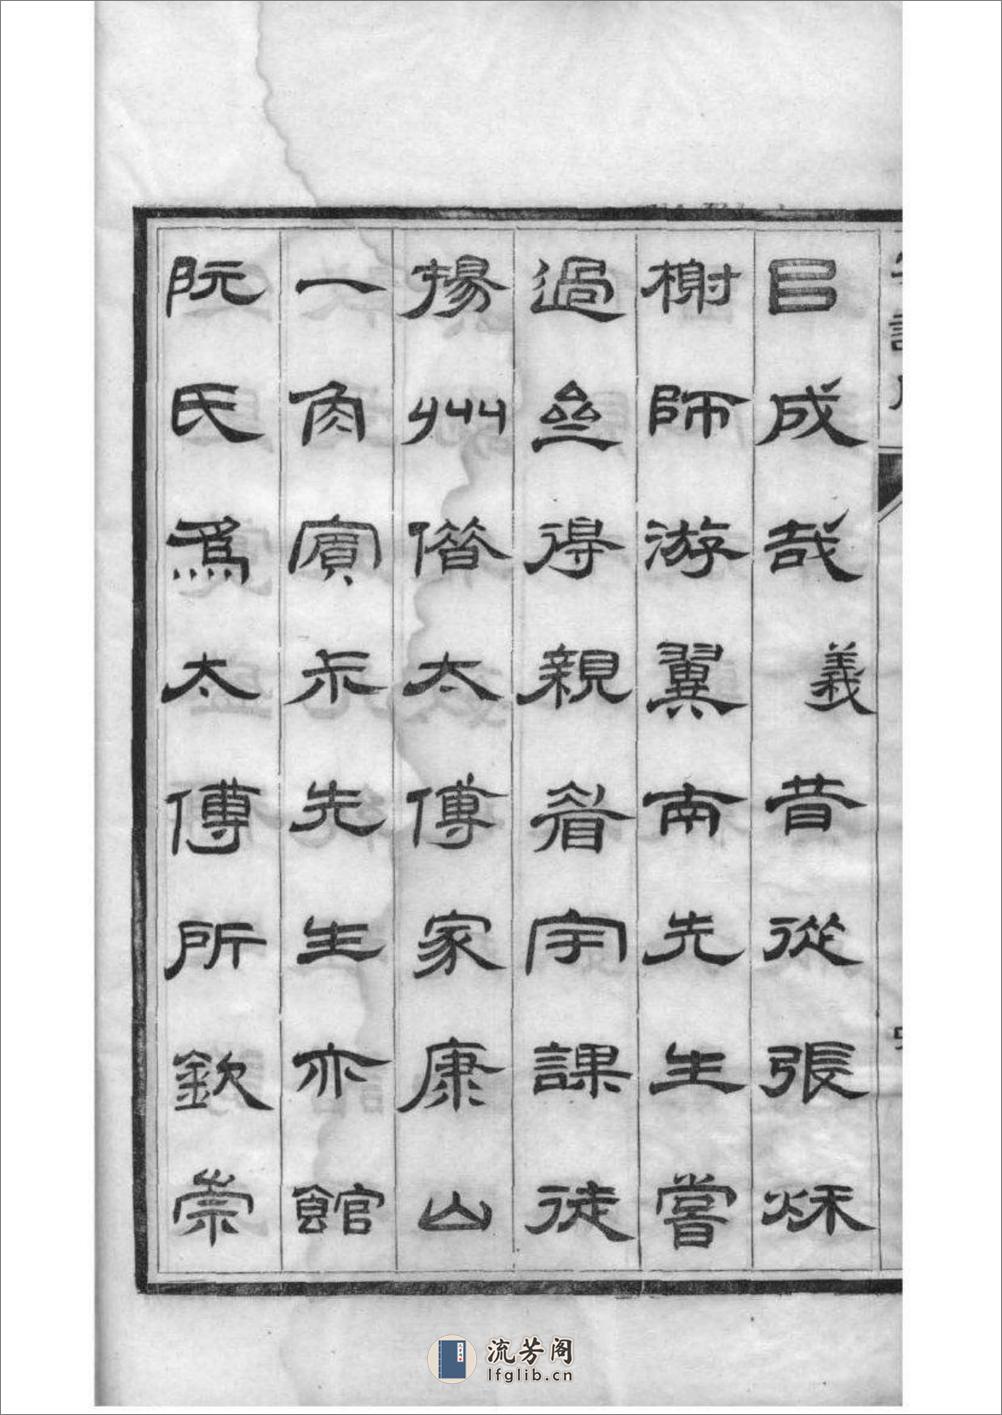 㠯成哉義昔從張秌
榭師游翼南先生嘗
過亝得親眉宇課徒
揚州僣太傅家康山
一角賓禾先生亦館
阮氏爲太傅所欽崇
流芳阁
lfglib.cn